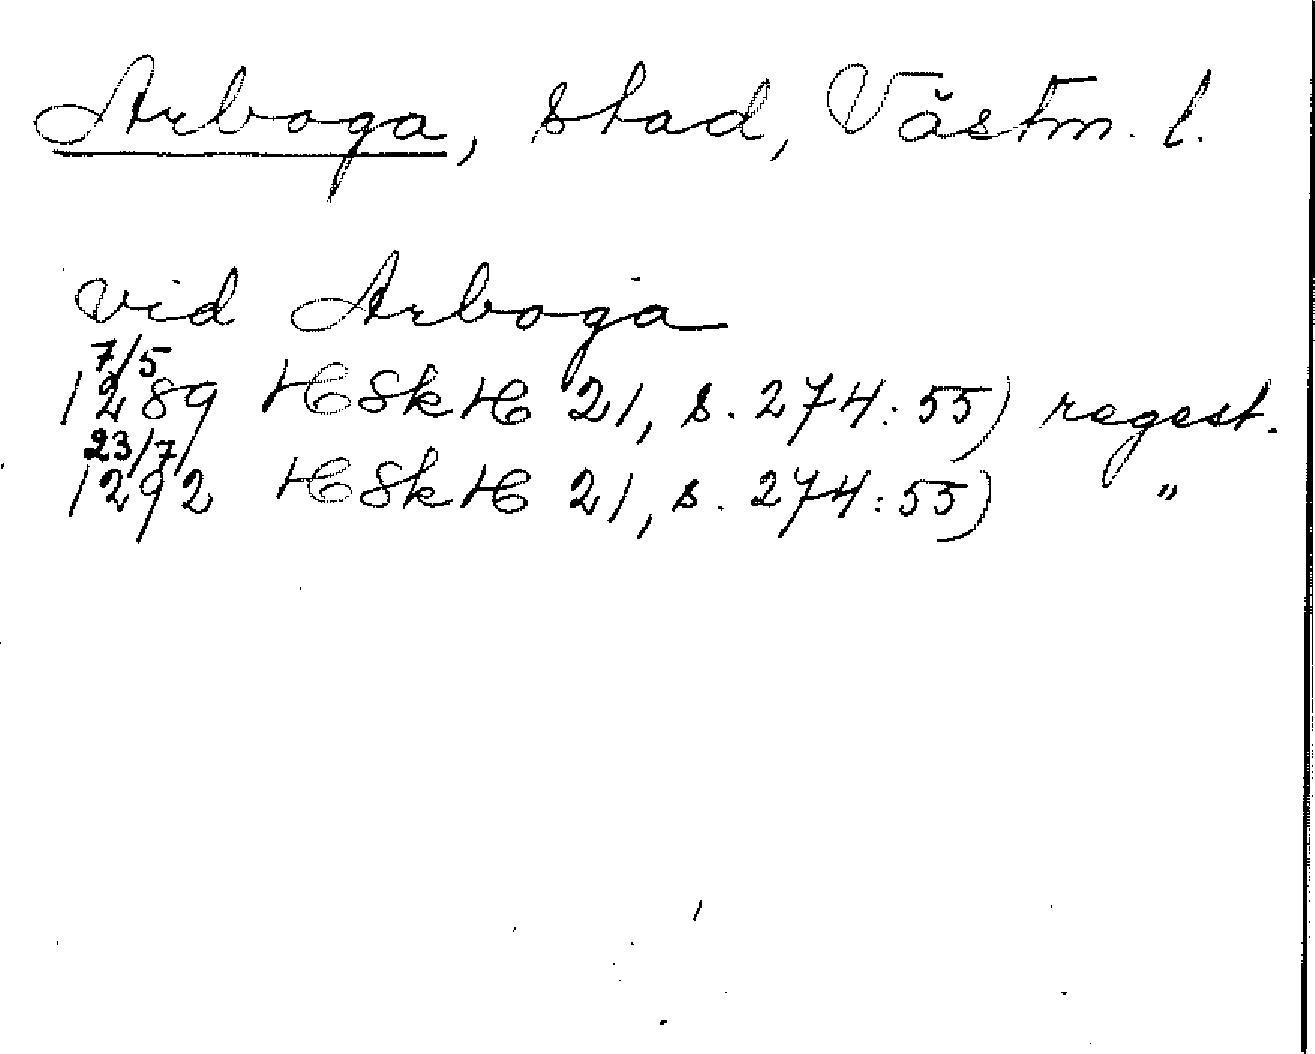 Arboga, stad, Västm. l.
vid Arboga
7/5
1289 HSkH 21, s. 274:55) regest.
23/7
1292 HSkH 21, s. 274:55) "